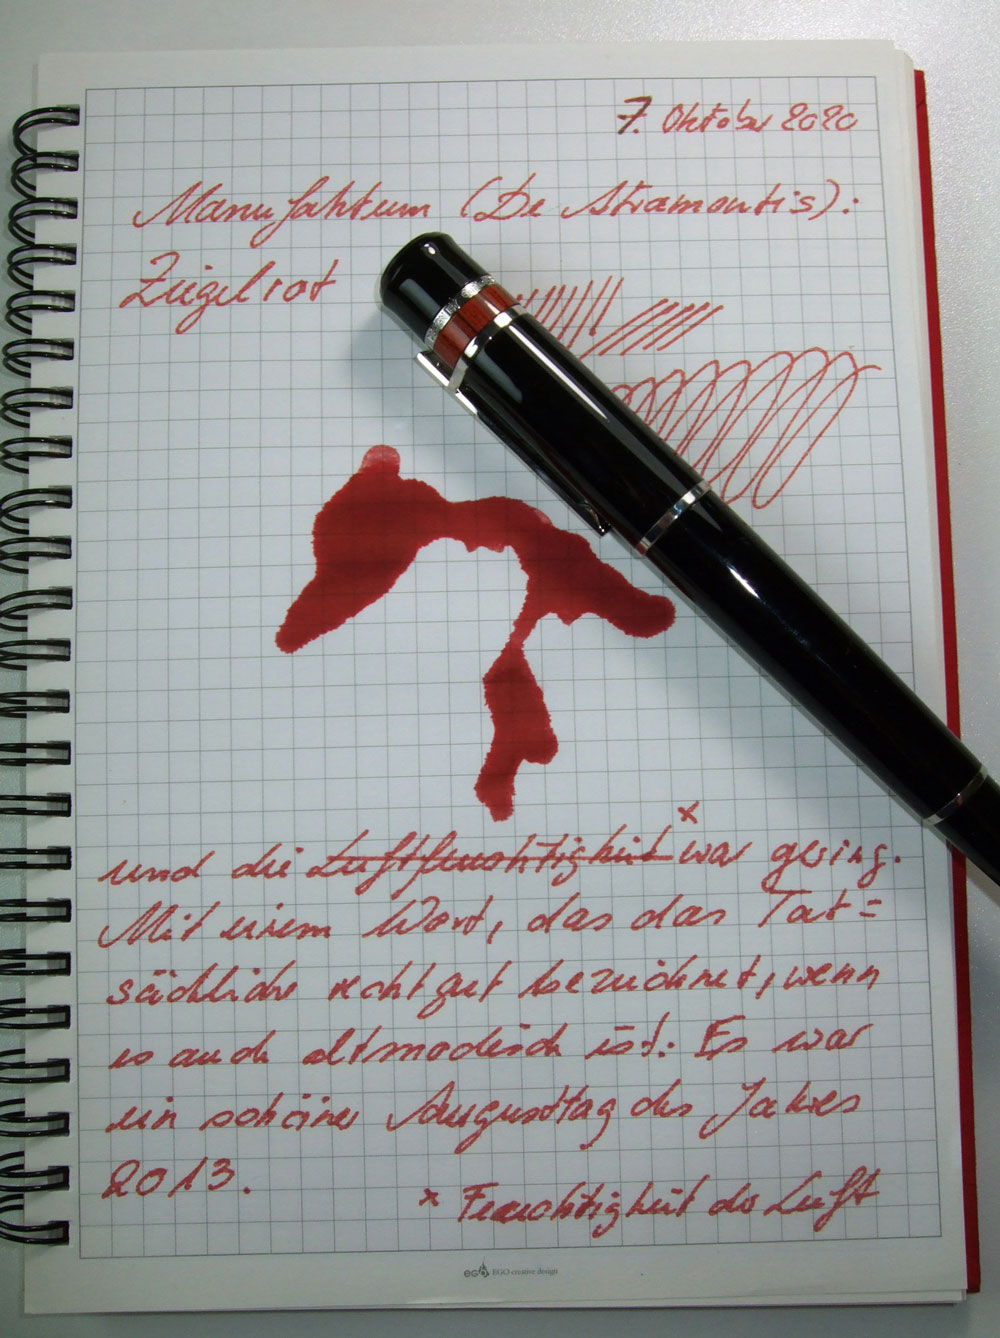 7. Oktober 2020
Manufaktum (De Atramentis):
Ziegelrot
x
und die Luftfeuchtigkeit war gering.
Mit einem Wort, das das Tat=
sächliche recht gut bezeichnet, wenn
es auch altmodisch ist: Es war
ein schöner Augusttag des Jahres
2013.
x Feuchtigkeit der Luft
EGO EGO creative design